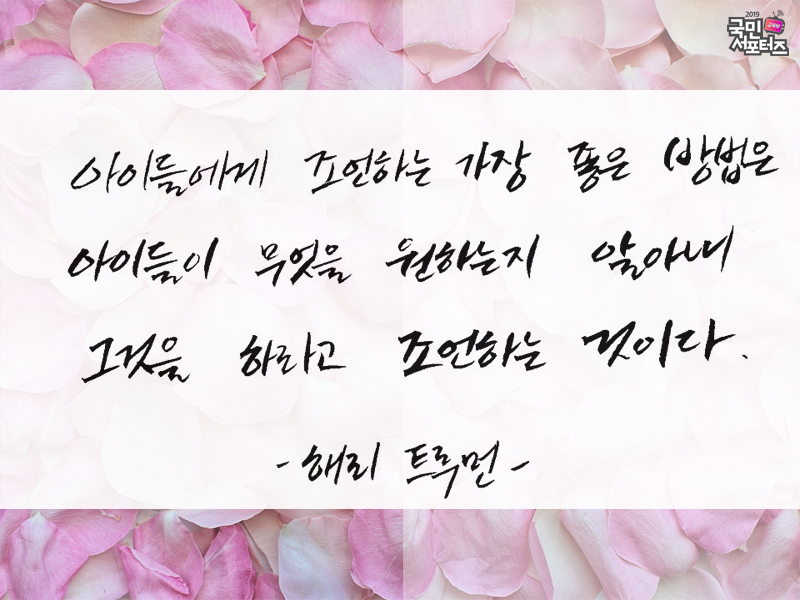 2019
국민
서포터즈
아이들에게 조언하는 가장 좋은 방법은
아이들이 무엇을 원하는지 알아내
그것을 하라고 조언하는 것이다.
- 해리 트루먼 -